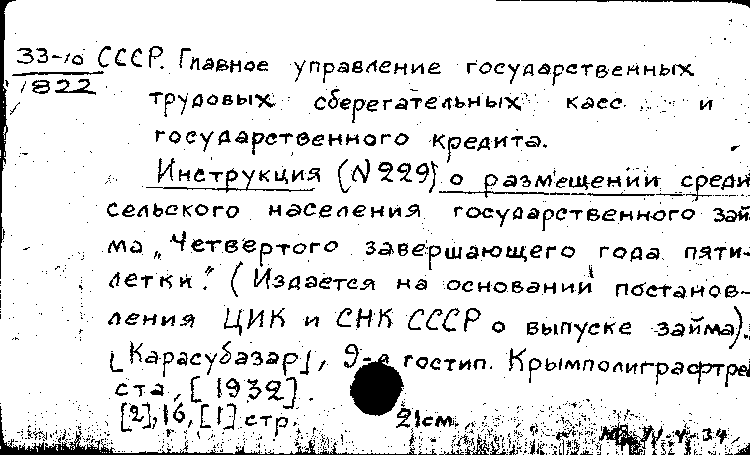 33-10 СССР. Главное управление государственных
1822
трудовых сберегательных касс и
государственного кредита.
Инструкция (N 229) о размещении среди
сельского населения государственного зай
ма „Четвертого завершающего года пяти-
летки." (Издается на основании постанов-
ления ЦИК и СНК СССР о выпуске займа).
[Карасубазар], 9-я гостип. Крымполиграфтре
ста, [1932].
[2], 16, [1] стр. 21см.